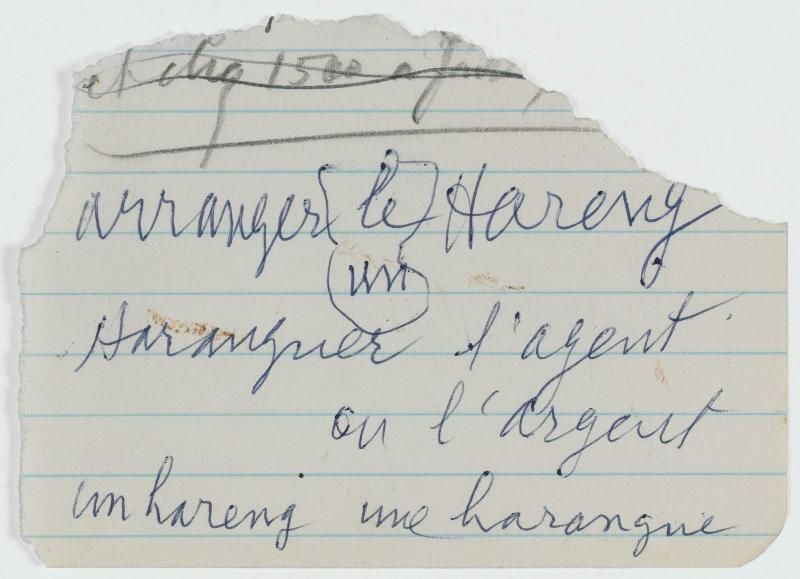 et 1500 a
arranger (le) Hareng
(un)
Haranguer l'agent
ou l'argent
un hareng une harangue